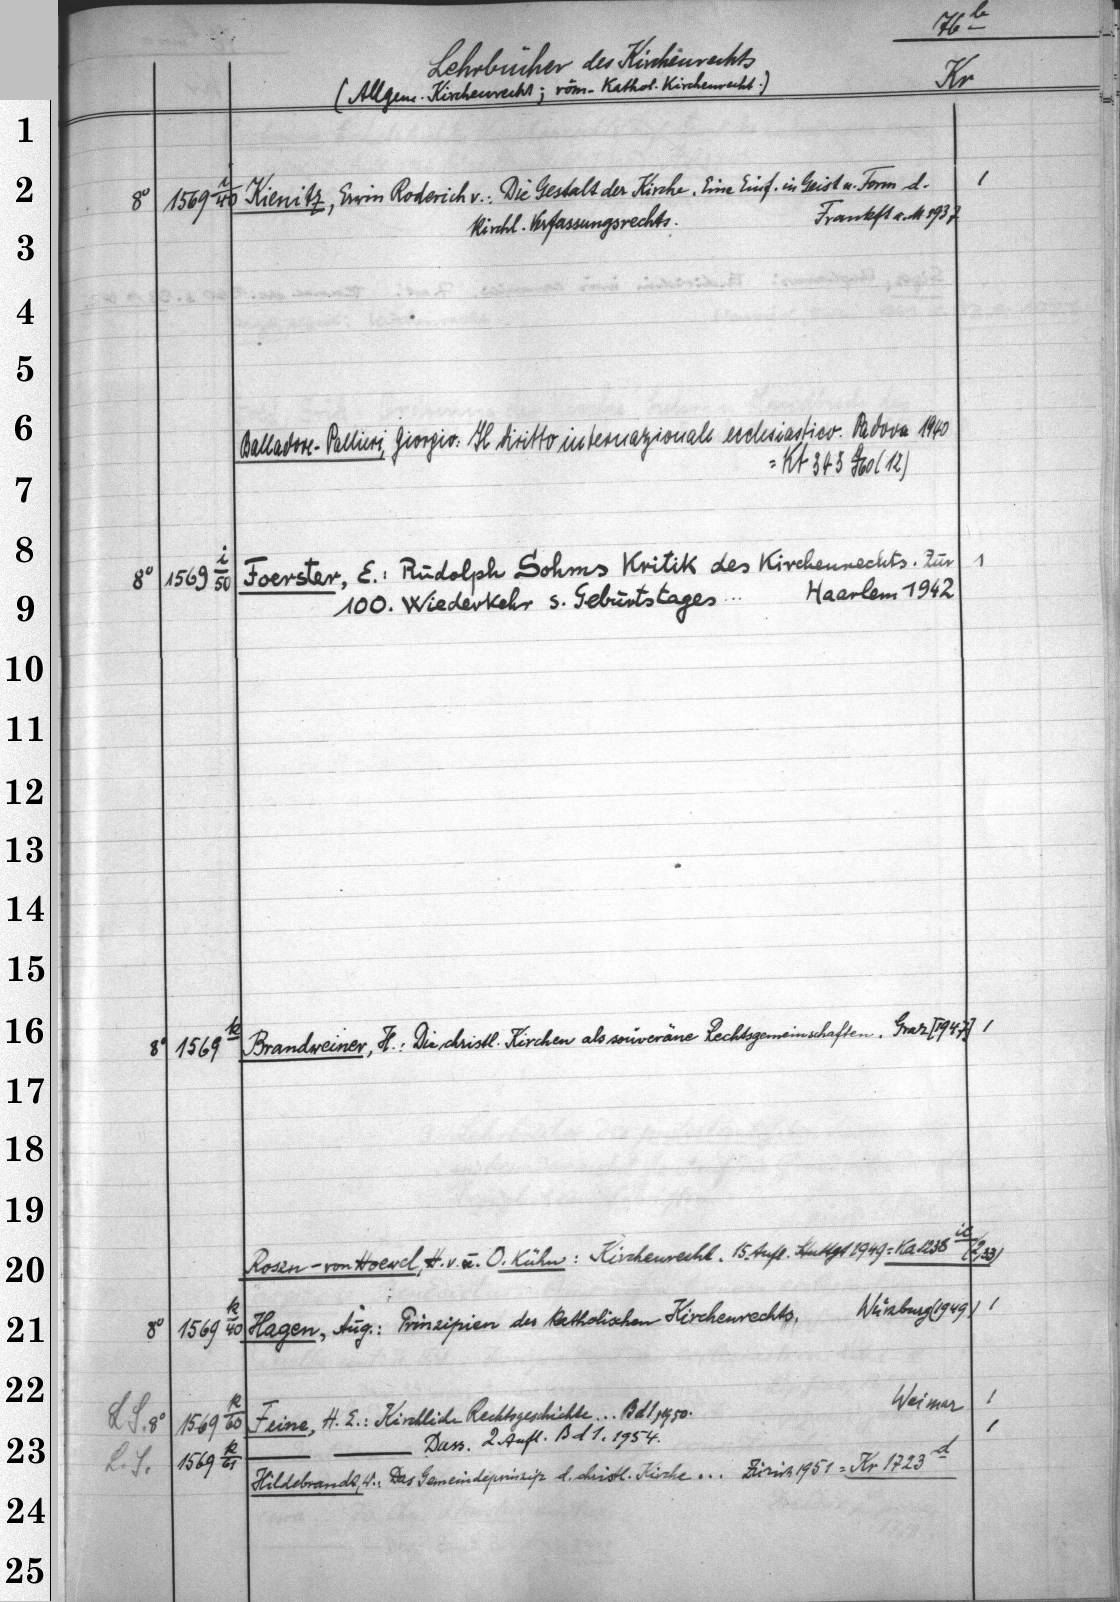 76 b
Lehrbücher des Kirchenrechts
(Allgem. Kirchenrecht; röm-Kathol. Kirchenrecht.)
Kr
1
2
8° 1569 i/40 Kienitz, Erwin Roderich v.: Die Gestalt der Kirche. Eine Einf. in Geist u. Form d. 1
kirchl. Verfassungsrechts. Frankft a. M 1937
3
4
5
6
Balladore-Pallieri, Giorgio: Il diritto internazionale ecclesiastico. Padova 1940
7
8
8° 1569 i/50 Foerster, E.: Rudolph Sohms Kritik des Kirchenrechts. Zur 1
9
100. Wiederkehr s. Geburtstages ... Haarlem 1942
10
11
12
13
14
15
16
8° 1569 k Brandweiner, H.: Die christl. Kirchen als souveräne Rechtsgemeinschaften. Graz [1947] 1
17
18
19
20
H. v. u. O. Kühn: Kirchenrecht. 15. Aufl. Stuttgt 1949 = Ka 1238 ic (2,33)
21
8° 1569 k/40 Hagen, Aug.: Prinzipien des katholischen Kirchenrechts, Würzburg (1949) 1
22
L.S. 8° 1569 k/60 Feine, H. E.: Kirchliche Rechtsgeschichte ... Bd 1, 1950. Weimar 1
23
L.S. 1569 k/61 — — Dass. 2. Aufl. Bd 1. 1954. 1
Hildebrandt, W.: Das Gemeindeprinzip d. christl. Kirche ... Zürich 1951 = Kr 1723 d
24
25